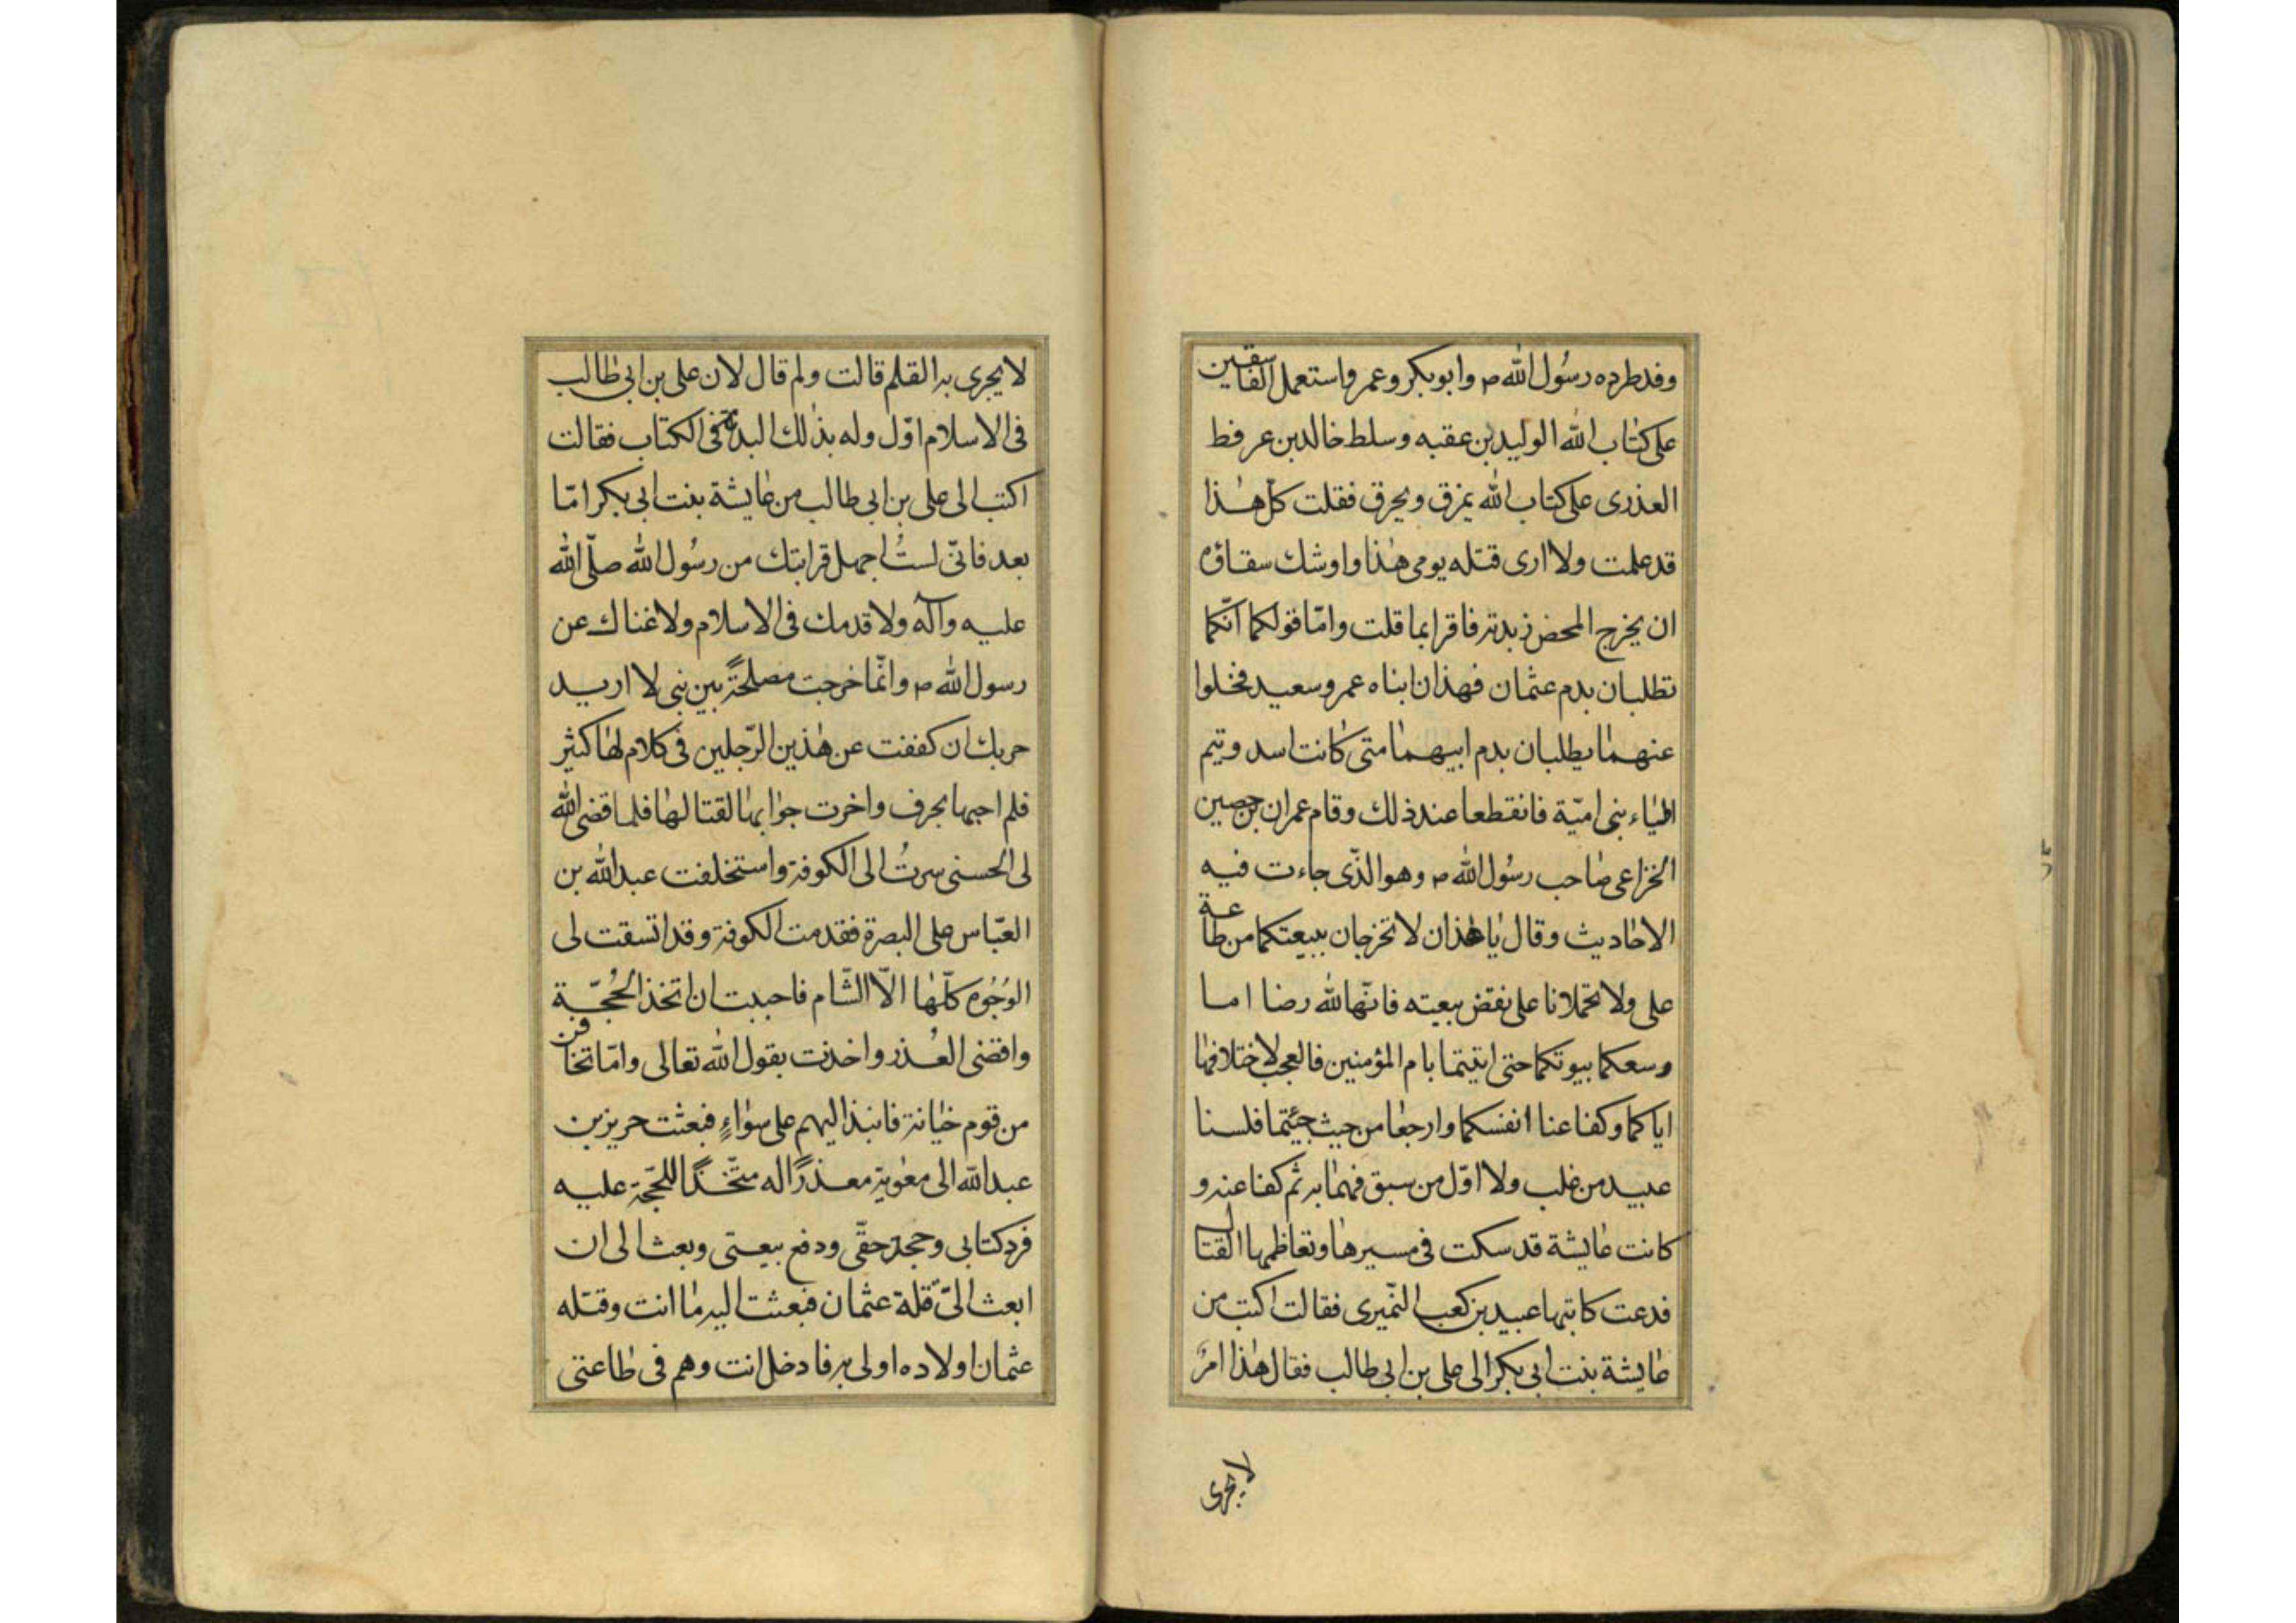 وقد طرده رسُول الله ص وابوبكر وعمر واستعمل الفاسقين
على كتاب الله الوليد بن عقبه وسلط خالد بن عرفط
العذرى على كتاب الله يمزق ويحرق فقلت كلّ هذا
قد علمت ولا ارى قتله يومى هذا واوشك سقاؤه
ان يخرج المحض زبدته فاقرا بما قلت وامّا قولكما انّكما
تطلبان بدم عثمان فهذان ابناه عمر وسعيد فخلوا
عنهما يطلبان بدم ابيهما متى كانت اسد وتيم
اولياء بنى اميّة فانقطعا عند ذلك وقام عمران بن حصين
الخزاعى صاحب رسُول الله ص وهو الذّى جاءت فيه
الاحاديث وقال يا هذان لا تخرجان ببيعتكما من طاعة
على ولا تحملانا على نقض بيعته فانّها لله رضا اما
وسعكما بيوتكما حتى اتيتما بام المؤمنين فالعجب لاختلافها
اياكما وكفا عنا انفسكما وارجعا من حيث جئتما فلسنا
عبيد من غلب ولا اوّل من سبق فهما به ثم كفا عنه و
كانت عايشة قد سكت فى مسيرها وتعاظمها القتال
فدعت كاتبها عبيد بن كعب النّميرى فقالت اكتب من
عايشة بنت ابى بكر الى على بن ابى طالب فقال هذا امرٌ
لا يجرى
لا يجرى به القلم قالت ولم قال لان على بن ابى طالب
فى الاسلام اوّل وله بذلك البدء فى الكتاب فقالت
اكتب الى على بن ابى طالب من عايشة بنت ابى بكر امّا
بعد فانّى لستُ اجهل قرابتك من رسُول الله صلّى الله
عليه وآله ولا قدمك فى الاسلام ولا غناك عن
رسول الله ص وانّما خرجت مصلحةً بين بنى لا اريد
حربك ان كففت عن هذين الرّجلين فى كلام لها كثير
فلم اجبها بحرف واخرت جوابها لقتالها فلما قضى الله
لى الحسنى سرتُ الى الكوفة واستخلفت عبد الله بن
العبّاس على البصرة فقدمت الكوفة وقد اتسقت لى
الوُجُوه كلّها الّا الشّام فاحببت ان اتخذ الحُجّة
واقضى العُذر واخذت بقول الله تعالى وامّا تخافن
من قوم خيانة فانبذ اليهم على سواءٍ فبعثت حريز بن
عبد الله الى معوية معذرًا له متّخذًا للحّجة عليه
فرد كتابى وجحد حقّى ودفع بيعتى وبعث الى ان
ابعث الىّ قتلة عثمان فبعثت اليه ما انت وقتله
عثمان اولاده اولى به فادخل انت وهم فى طاعتى